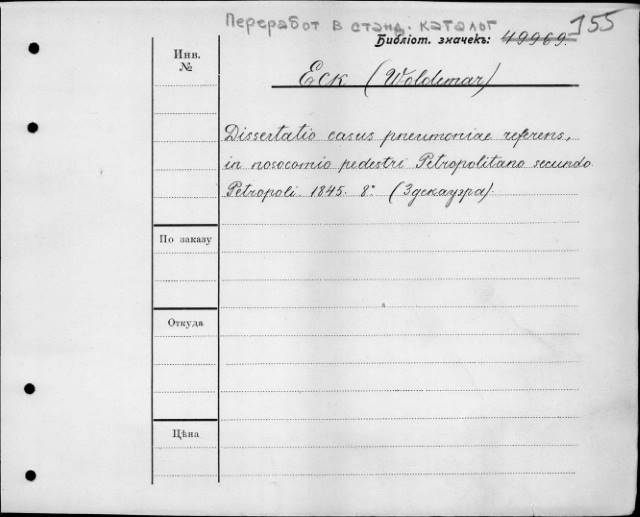 Переработ в станд. каталог
155
Библіот. значекъ: 49969.
Инв.
№
Eck (Woldemar)
Dissertatio casus pneumoniae referens,
in nosocomio pedestri Petropolitano secundo
Petropoli. 1845. 8° (Здекауэра).
По заказу
Откуда
Цѣна